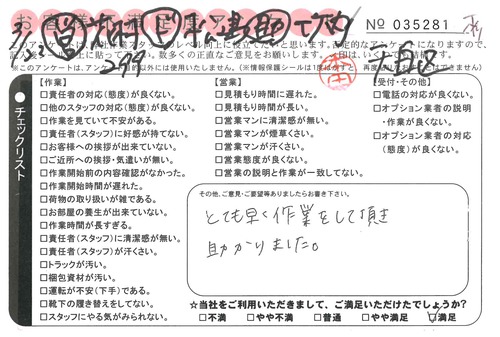 № 035281
チェックリスト
【作業】
□作業者の対応(態度)が良くない。
□他のスタッフの対応(態度)が良くない。
□作業を見ていて不安がある。
□責任者(スタッフ)に好感が持てない。
□お客様への挨拶が出来ていない。
□ご近所への挨拶・気遣いが無い。
□作業開始前の内容確認がなかった。
□作業開始時間が遅れた。
□荷物の取り扱いが雑である。
□お部屋の養生が出来ていない。
□作業時間が長すぎる。
□責任者(スタッフ)に清潔感が無い。
□責任者(スタッフ)が汗くさい。
□トラックが汚い。
□梱包資材が汚い。
□運転が不安(下手)である。
□靴下の履き替えをしてない。
□スタッフにやる気がみられない。
【営業】
□見積もり時間に遅れた。
□見積もり時間が長い。
□営業マンに清潔感が無い。
□営業マンが煙草くさい。
□営業マンが汗くさい。
□営業態度が良くない。
□営業の説明と作業が一致してない。
【受付・その他】
□電話の対応が良くない。
□オプション業者の説明
・作業が良くない。
□オプション業者の対応
(態度)が良くない。
その他、ご意見・ご要望等ありましたらお書き下さい。
とても早く作業をして頂き
助かりました。
☆当社をご利用いただきまして、ご満足いただけたでしょうか?
□不満 □やや不満 □普通 □やや満足 □満足